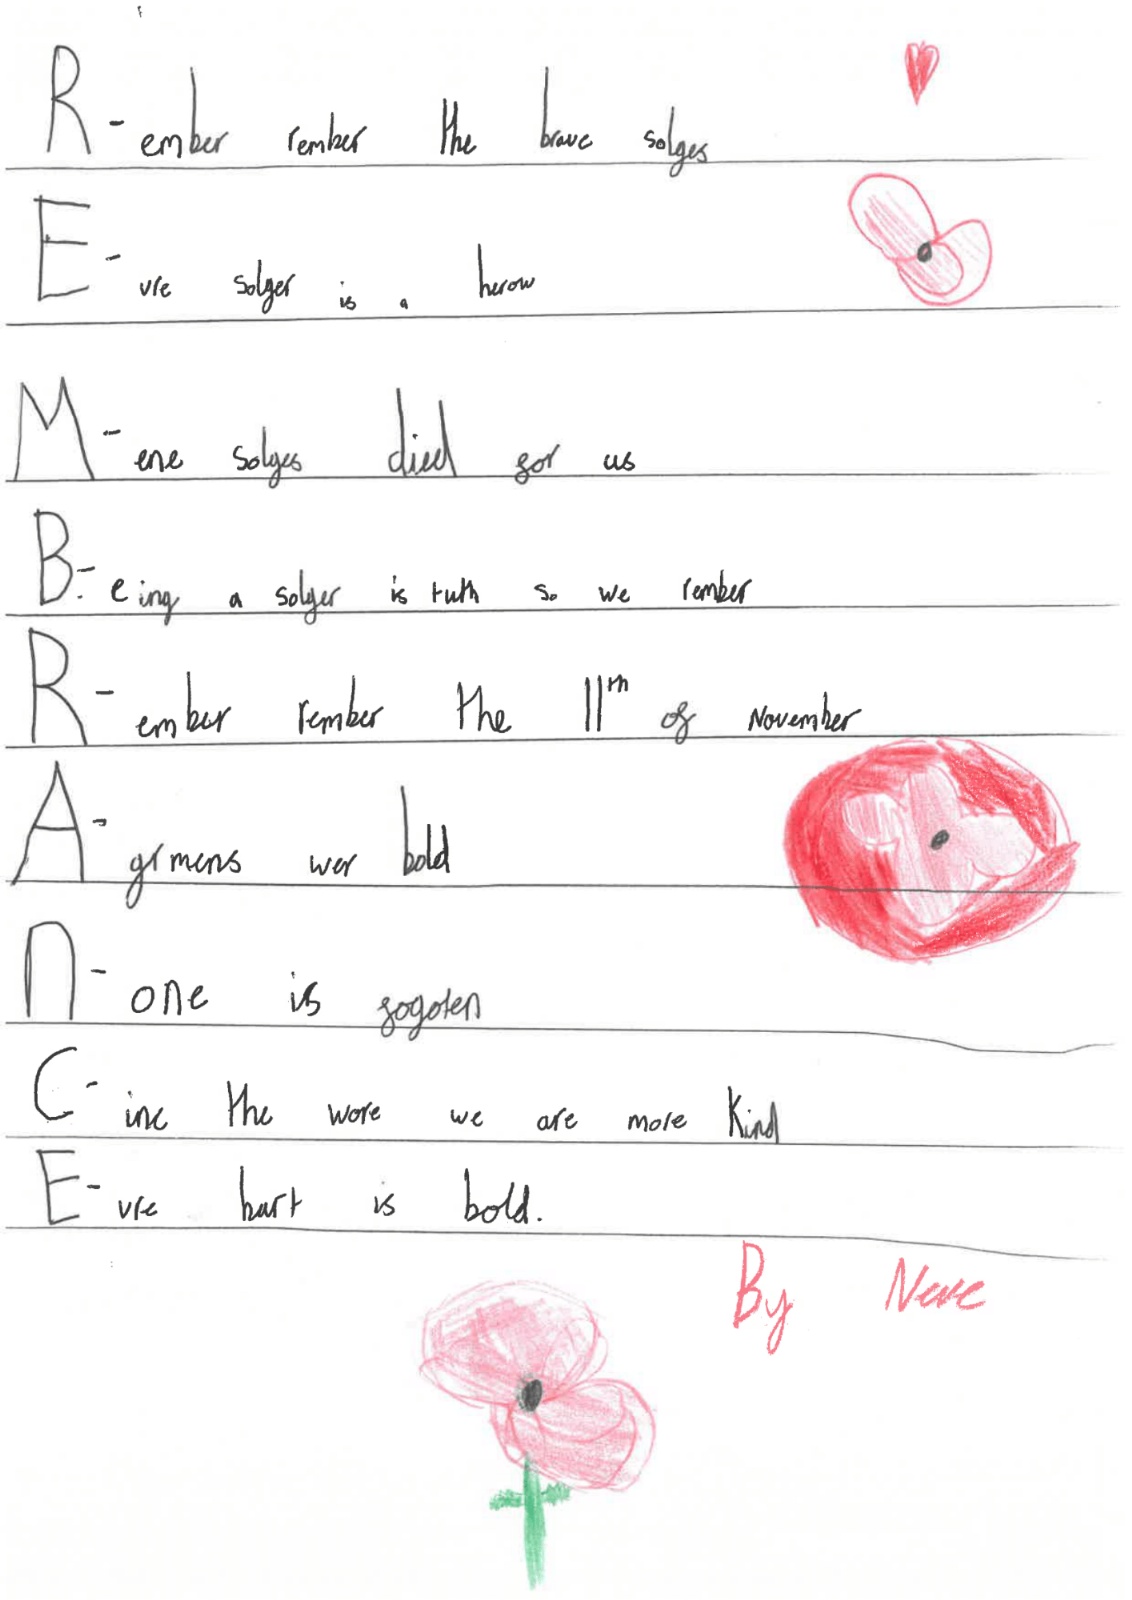 R- ember rember the brave solges
E- vre solger is a herow
M- ene solges died for us
B- eing a solger is tuth so we rember
R- ember rember the 11th of November
A- grmens wer bold
n- one is fogoten
C- inc the wore we are more kind
E- vre hart is bold.
By Neve